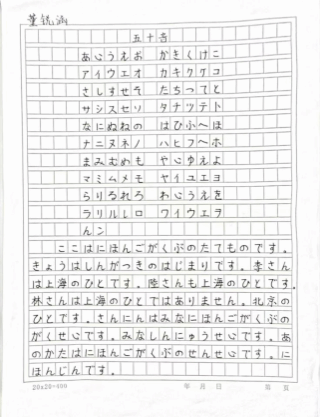 董锐涵
五十音
あいうえお かきくけこ
アイウエオ カキクケコ
さしすせそ たちつてと
サシスセソ タナツテト
なにぬねの はひふへほ
ナニヌネノ ハヒフヘホ
まみむめも やいゆえよ
マミムメモ ヤイユエヨ
らりるれろ わいうえを
ラリルレロ ワイウエヲ
んン
ここはにほんごがくぶのたてものです。
きょうはしんがっきのはじまりです。李さん
は上海のひとです。陸さんも上海のひとです。
林さんは上海のひとではありません。北京の
ひとです。さんにんはみなにほんごがくぶの
がくせいです。みなしんにゅうせいです。あ
のかたはにほんごがくぶのせんせいです。に
ほんじんです。
20×20=400 年 月 日 第 页